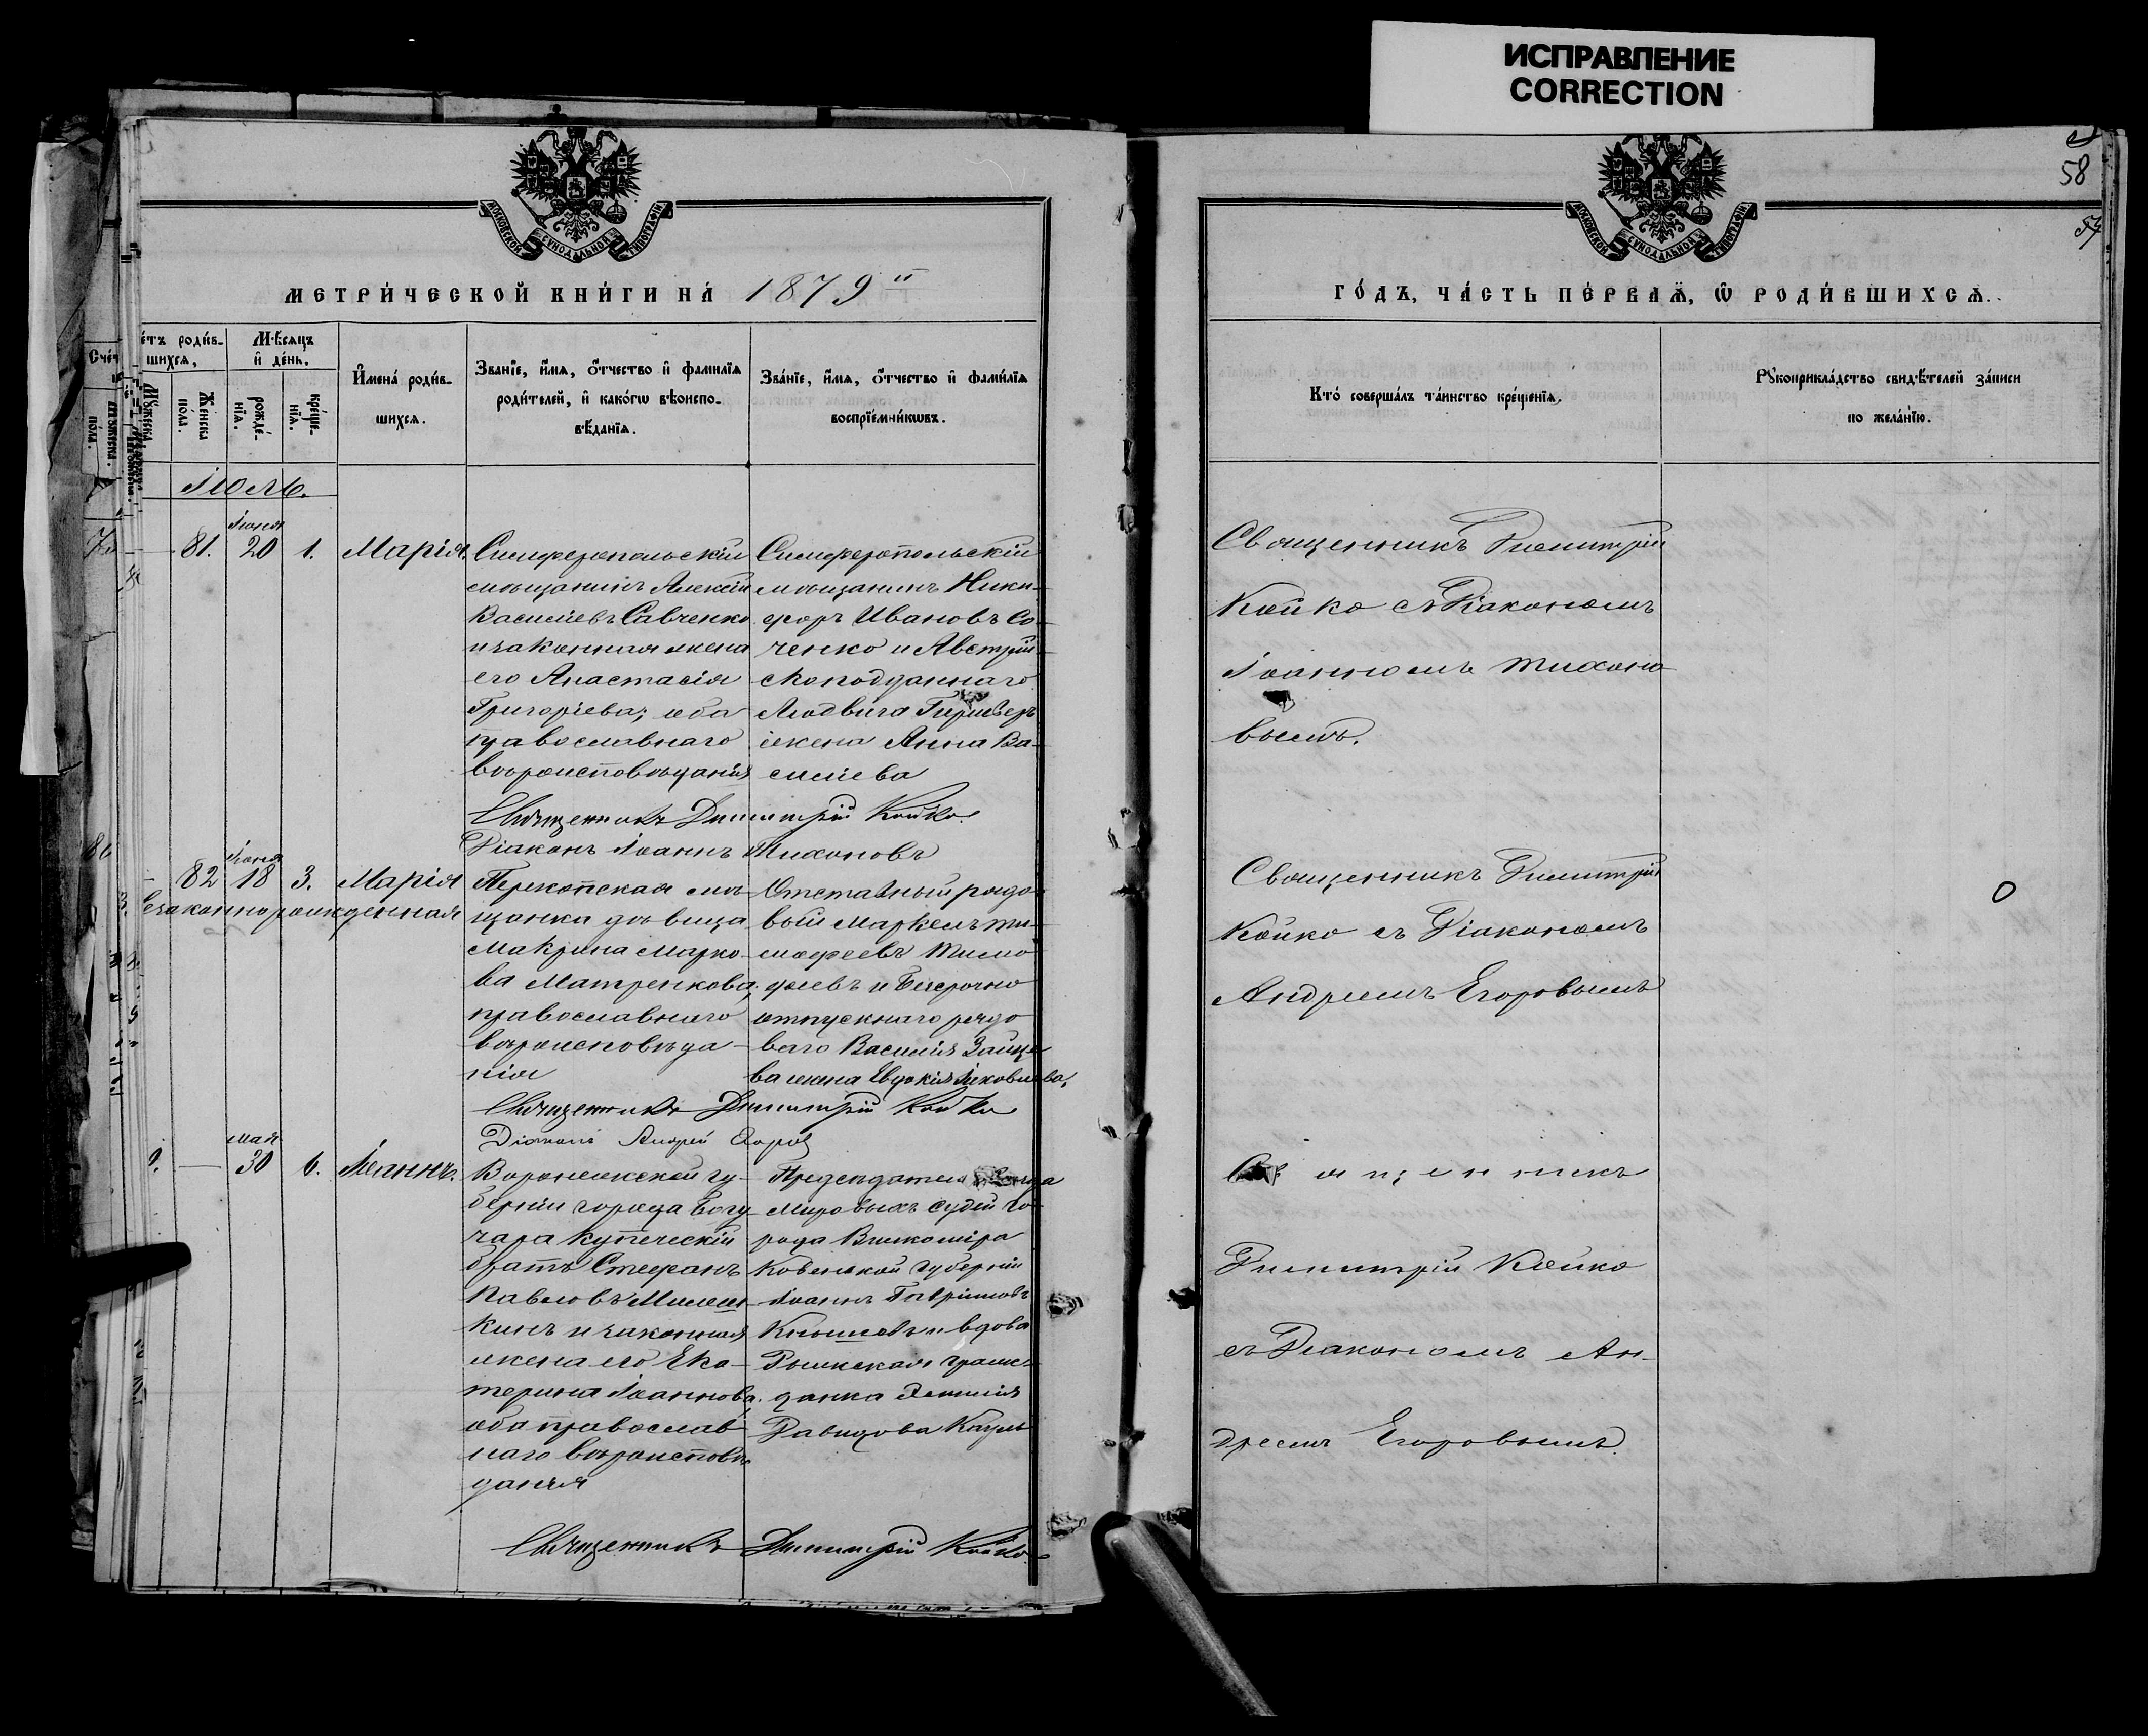 ИСПРАВЛЕНИЕ
CORRECTION
58
57
МОСКОВСКОЙ СѴНОДАЛЬНОЙ ТИПОГРАФІИ
МЕТРИ́ЧЕСКОЙ КНИ́ГИ НА́ 1879й
Счéтъ роди́вшихся,
Мꙋ́жеска по́ла.
Же́нска по́ла.
Мѣ́сяцъ и҆ де́нь.
рожде́нїѧ.
креще́нїѧ.
И҆мена̀ роди́вшихсѧ.
Зва́нїе, и҆́мѧ, ѻ҆́тчество и҆ фамилїѧ
роди́телей, и҆ како́гѡ вѣроиспо-
вѣ́данїѧ.
Зва́нїе, и҆́мѧ, ѻ҆́тчество и҆ фами́лїѧ
воспрїе́мникѡвъ.
Іюль.
Іюня
81. 20 1. Марія.
Симферопольскій
мѣщанинъ Алексѣй
Васильевъ Савченко
и законная жена
его Анастасія
Григорьева; оба
православнаго
вѣроисповѣданія
Симферопольскій
мѣщанинъ Ники-
форъ Ивановъ Со-
ченко и Австрій-
скоподданнаго
Людвига
жена Анна Ва-
сильева
Священникъ Димитрій Койко
Діаконъ Іоаннъ Тихоновъ
Іюня
82 18 3. Марія
незаконнорожденная
Перекопская мѣ-
щанка дѣвица
Макрина Марко-
ва Матренкова,
православнаго
вѣроисповѣда-
нія
Отставный рядо-
вый Маркелъ Ти-
мофеевъ Тимо-
феевъ и безсрочно
отпускнаго рядо
ваго Василія Зайце
ва жена Евдокія Яковлева.
Священникъ Димитрій Койко
Діаконъ Андрей Егоровъ
мая
— 30 6. Іоаннъ.
Воронежской гу-
берніи города Богу-
чара купеческій
братъ Стефанъ
Павловъ
кинъ и законная
жена его Ека-
терина Іоаннова,
оба православ-
наго вѣроисповѣ
данія
Предсѣдатель съѣзда
Мировыхъ Судей го-
рода Вилкоміра
Ковенской губерніи
Іоаннъ Гавриловъ
и вдова
граж-
данка
Давидова
Священникъ Димитрій Койко
ГО́ДЪ, ЧА́СТЬ ПЕ́РВАѦ, Ѡ҆ РОДИ́ВШИХСѦ.
Кто̀ соверша́лъ та́инство креще́нїѧ.
Рꙋкоприкла́дство свидѣ́телей за́писи
по жела́нїю.
Священникъ Димитрій
Койко съ Діакономъ
Іоанномъ Тихоно
вымъ.
Священникъ Димитрій
Койко съ Діакономъ
Андреемъ Егоровымъ
Священникъ
Димитрій Койко
съ Діакономъ Ан-
дреемъ Егоровымъ.